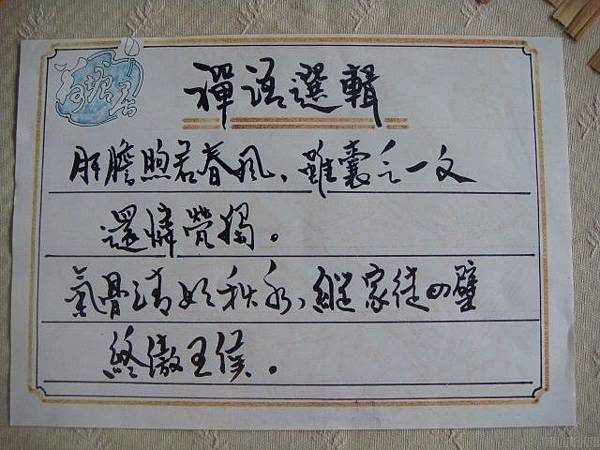 禪語選輯
肝膽煦若春風，雖囊乏一文
還憐煢獨。
氣骨清如秋水，縱家徒四壁
終傲王侯。